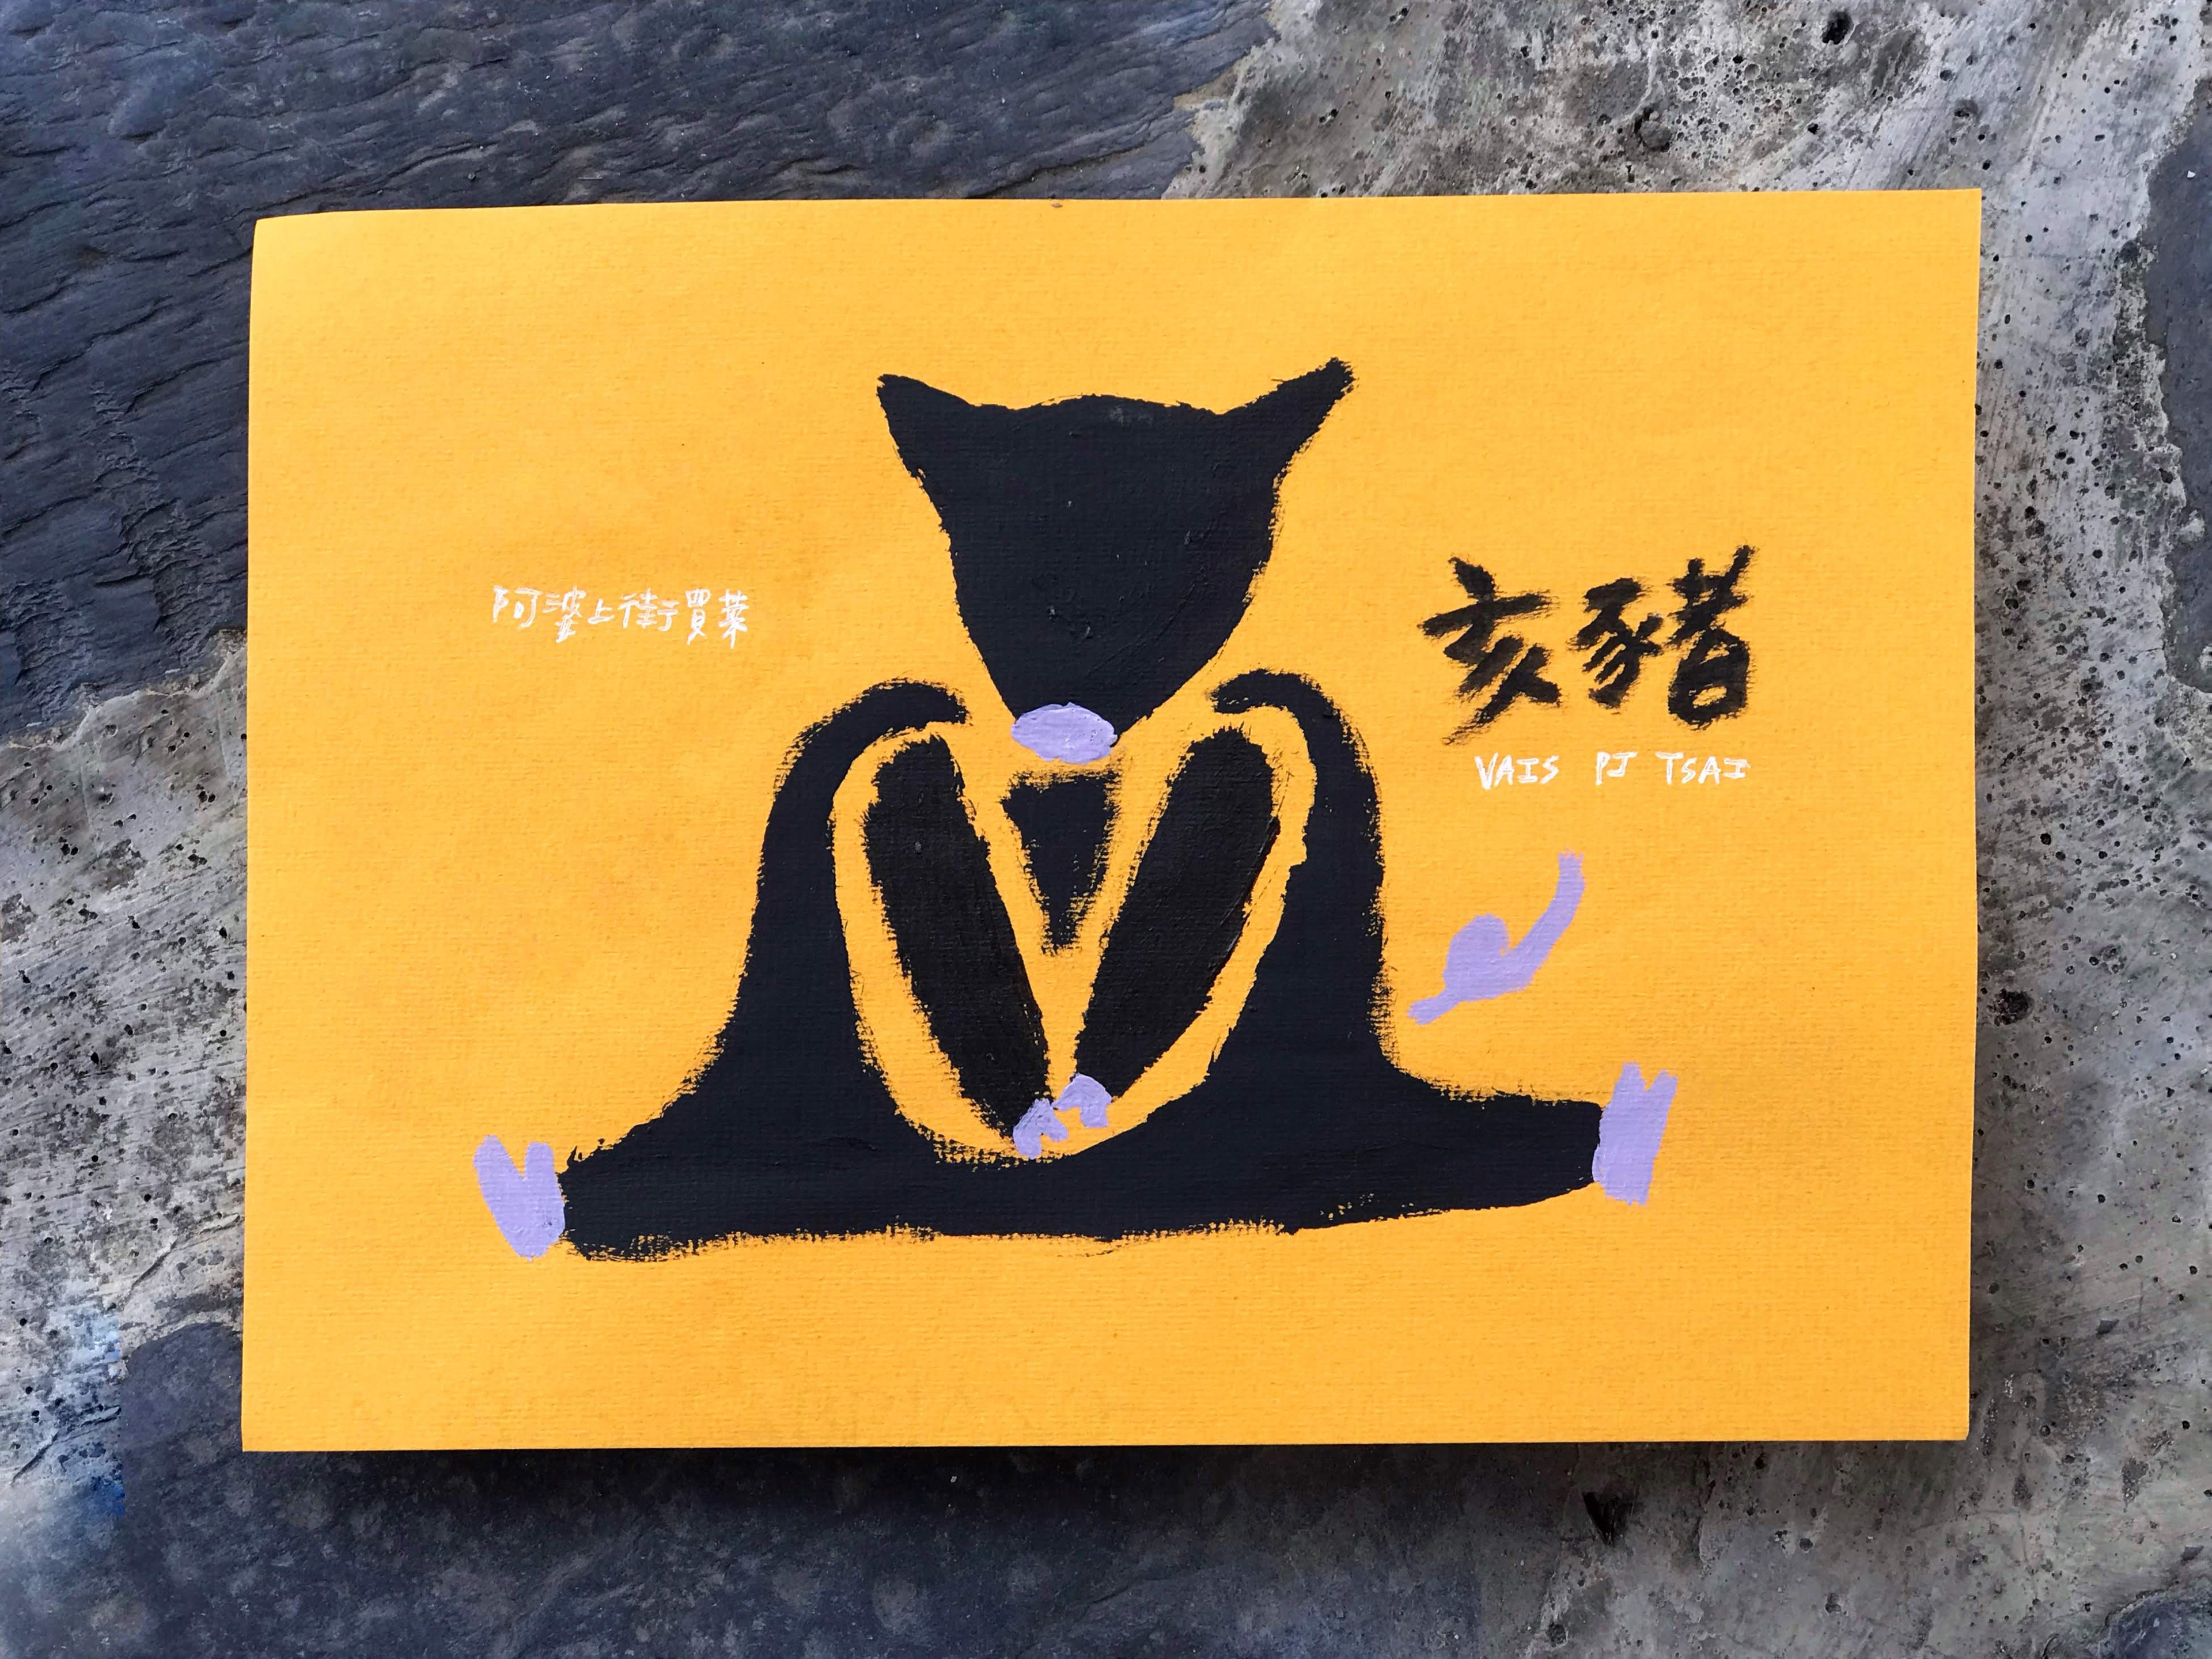 阿婆上街買菜
亥豬
VAIS PI TSAI